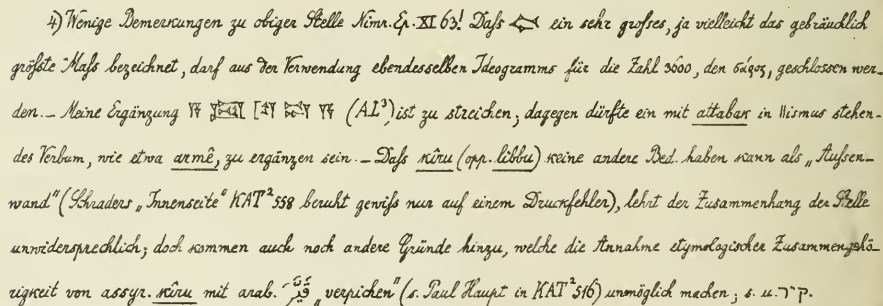 4) Wenige Bemerkungen zu obiger Stelle Nimr. Ep. XI 63! Daſs 𒊹 ein sehr groſses, ja vielleicht das gebräuchlich
gröſste Maſs bezeichnet, darf aus der Verwendung ebendesselben Ideogramms für die Zahl 3600, den σάρος, geschlossen wer-
den. – Meine Ergänzung (AL³) ist zu streichen; dagegen dürfte ein mit attabak in Hismus stehen-
des Verbum, wie etwa armê, zu ergänzen sein. – Daſs ḳîru (opp. libbu) keine andere Bed. haben kann als „Auſsen-
wand" (Schraders „Innenseite" KAT² 558 beruht gewiſs nur auf einem Druckfehler), lehrt der Zusammenhang der Stelle
unwidersprechlich; doch kommen auch noch andere Gründe hinzu, welche die Annahme etymologischer Zusammengehö-
rigkeit von assyr. ḳîru mit arab. قَيَّرَ „verpichen" (s. Paul Haupt in KAT² 516) unmöglich machen; s. u. קיר.